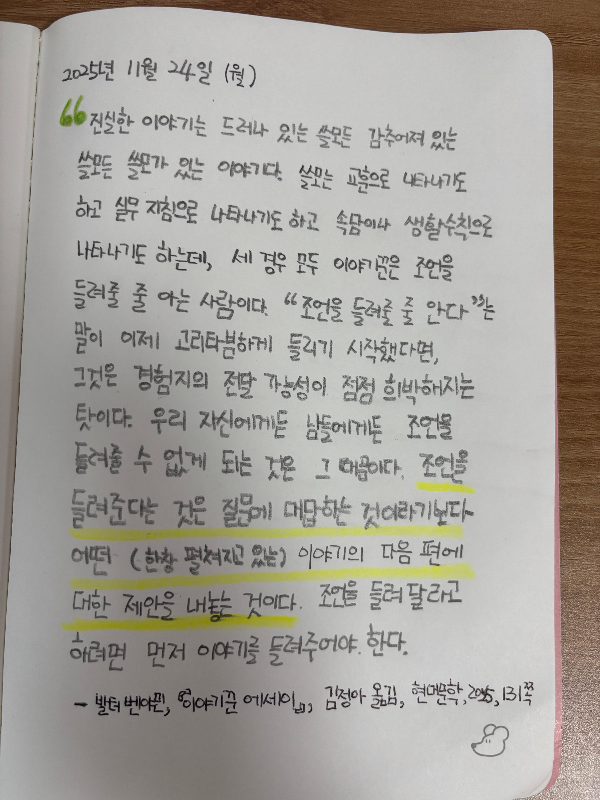 2025년 11월 24일 (월)
“진실한 이야기는 드러나 있는 쓸모든 감추어져 있는
쓸모든 쓸모가 있는 이야기다. 쓸모는 교훈으로 나타나기도
하고 실무 지침으로 나타나기도 하고 속담이나 생활수칙으로
나타나기도 하는데, 세 경우 모두 이야기꾼은 조언을
들려줄 줄 아는 사람이다. “조언을 들려줄 줄 안다”는
말이 이제 고리타분하게 들리기 시작했다면,
그것은 경험지의 전달 가능성이 점점 희박해지는
탓이다. 우리 자신에게든 남들에게든 조언을
들려줄 수 없게 되는 것은 그 때문이다. 조언을
들려준다는 것은 질문에 대답하는 것이라기보다
어떤 (한창 펼쳐지고 있는) 이야기의 다음 편에
대한 제안을 내놓는 것이다. 조언을 들려 달라고
하려면 먼저 이야기를 들려주어야 한다.
- 발터 벤야민, 『이야기꾼 에세이』, 김정아 옮김, 현대문학, 2025, 131쪽